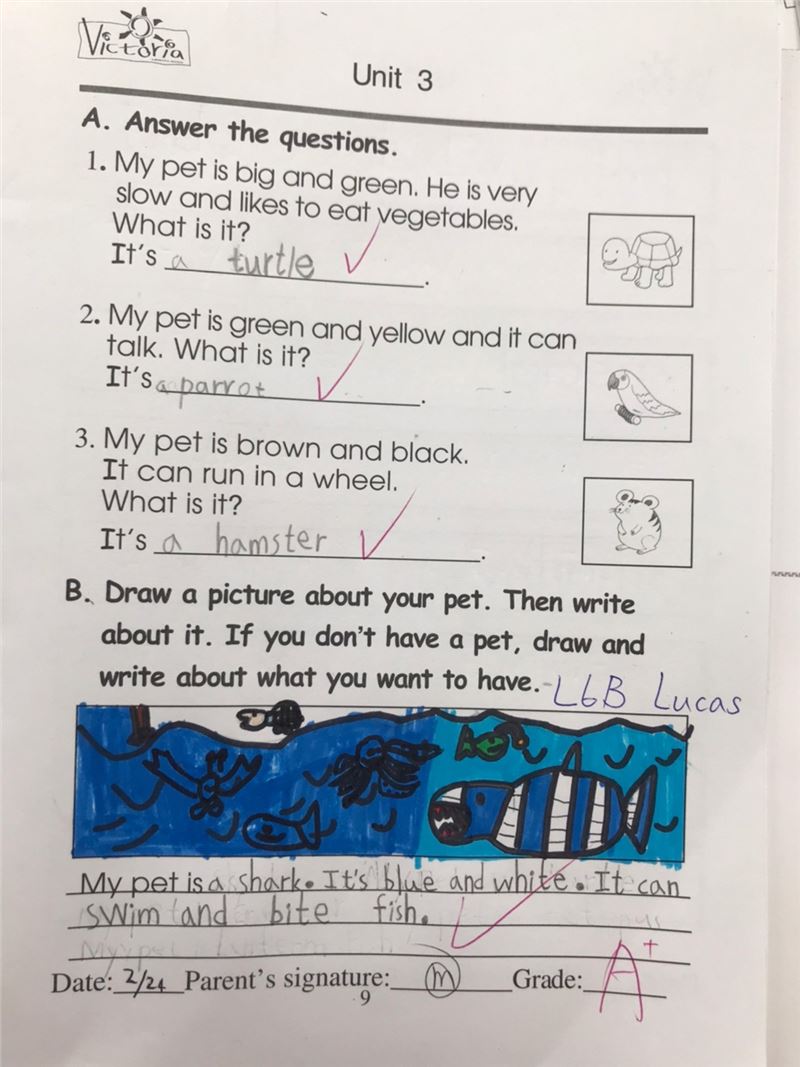 Victoria
Unit 3
A. Answer the questions.
1. My pet is big and green. He is very
slow and likes to eat vegetables.
What is it?
It's a turtle.
2. My pet is green and yellow and it can
talk. What is it?
It's a parrot.
3. My pet is brown and black.
It can run in a wheel.
What is it?
It's a hamster.
B. Draw a picture about your pet. Then write
about it. If you don't have a pet, draw and
write about what you want to have.
L6B Lucas
My pet is a shark. It's blue and white. It can
swim and bite fish.
Date: 2/24 Parent's signature: M Grade: A+
9